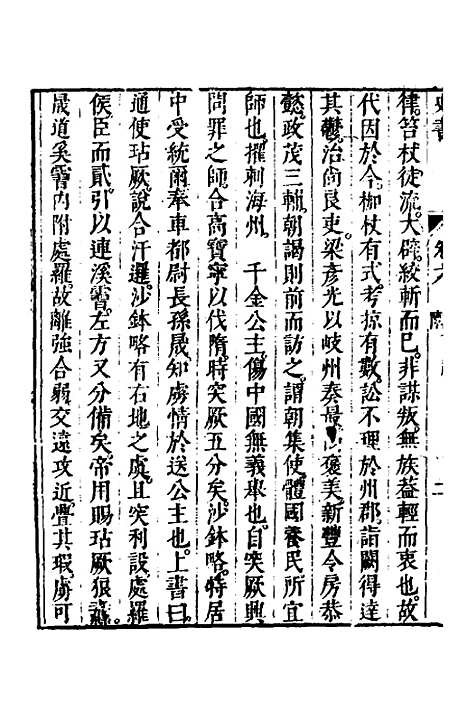 卷六
二
律笞杖徒流大辟絞斬而已非謀叛無族葢輕而衷也故
代因於今枷杖有式考掠有數訟不理於州郡詣闕得達
其鬱治尚良吏梁彥光以岐州奏最褒美新豐令房恭
懿政茂三輔朝謁則前而訪之謂朝集使體國養民所宜
師也擢刺海州　千金公主傷中國無義舉也自突厥興
問罪之師合高寶寧以伐隋時突厥五分矣沙鉢略特居
中受統爾奉車都尉長孫晟知虜情於送公主也上書曰
通使玷厥說合汗邏沙鉢略有右地之虞且突利設處羅
侯臣而貳引以連溪霫左方又分備矣帝用賜玷厥狼纛
晟道奚霫内附處羅故離強合弱交遠攻近舋其瑕虜可